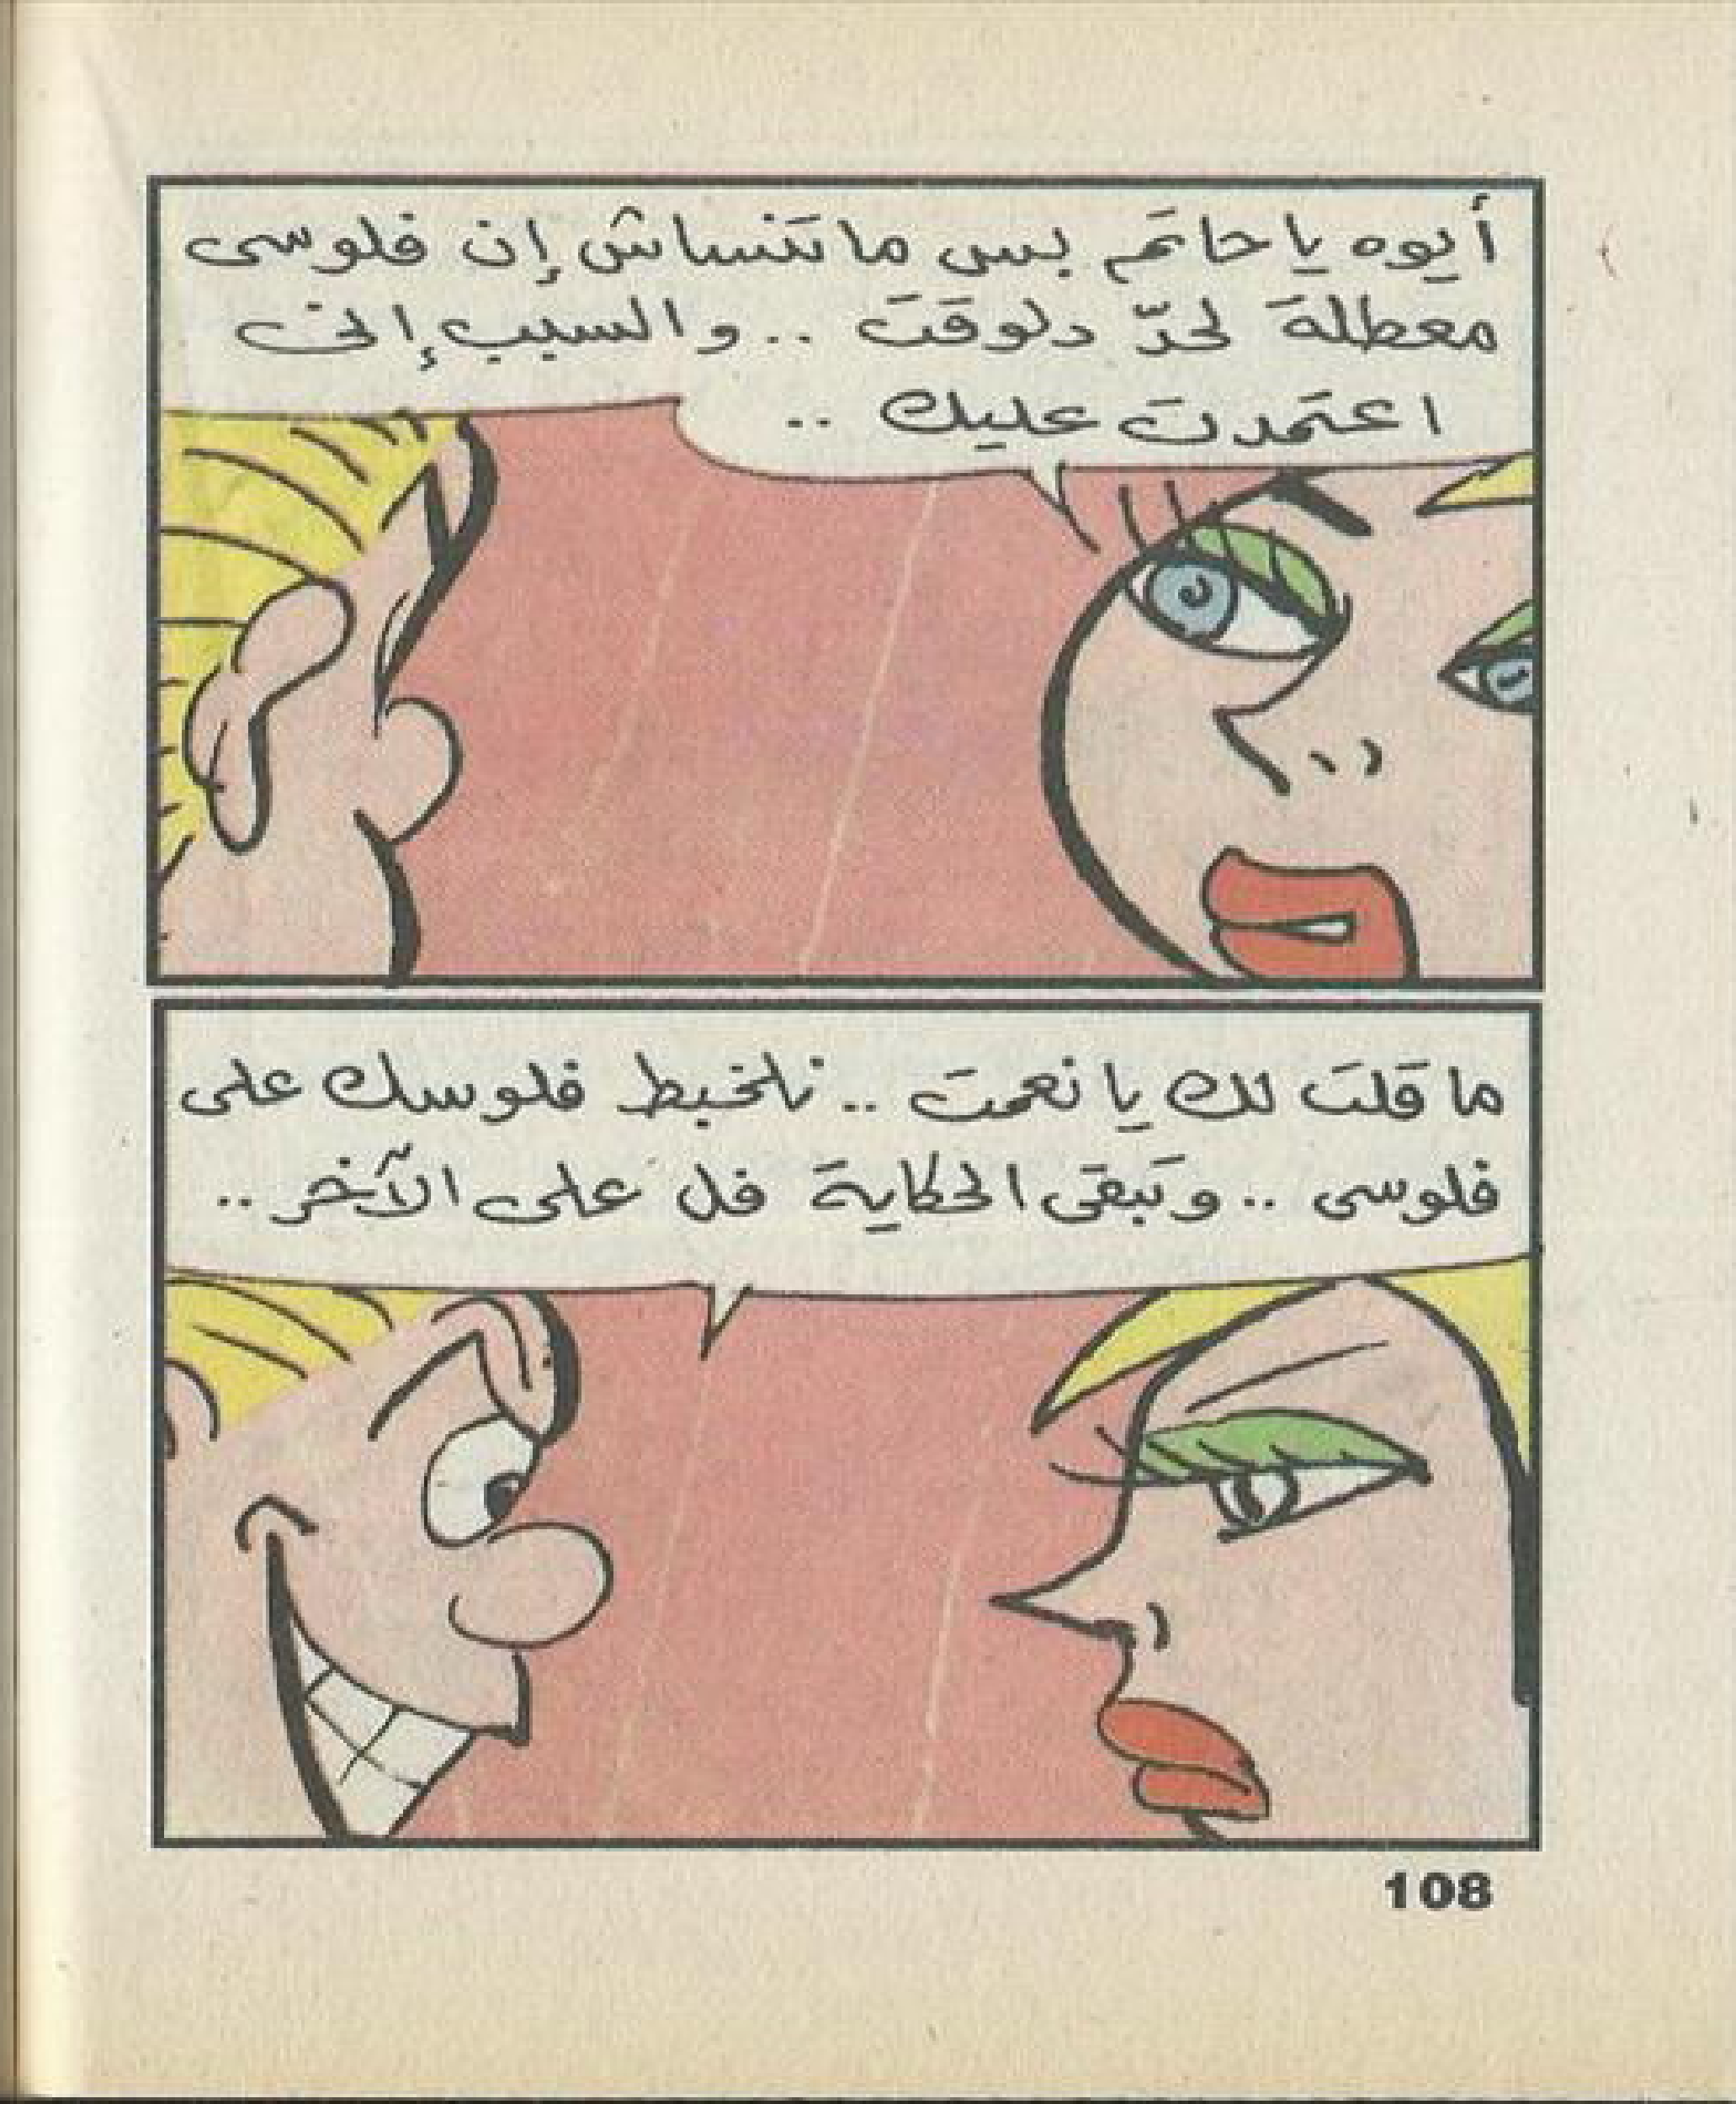 أيوه يا حاتم بس ما تنساش إن فلوسى
معطلة لحدّ دلوقت .. والسبب إنى
اعتمدت عليك ..
ما قلت لك يا نعمت .. نلخبط فلوسك على
فلوسى .. وتبقى الحكاية فل على الآخر ..
108